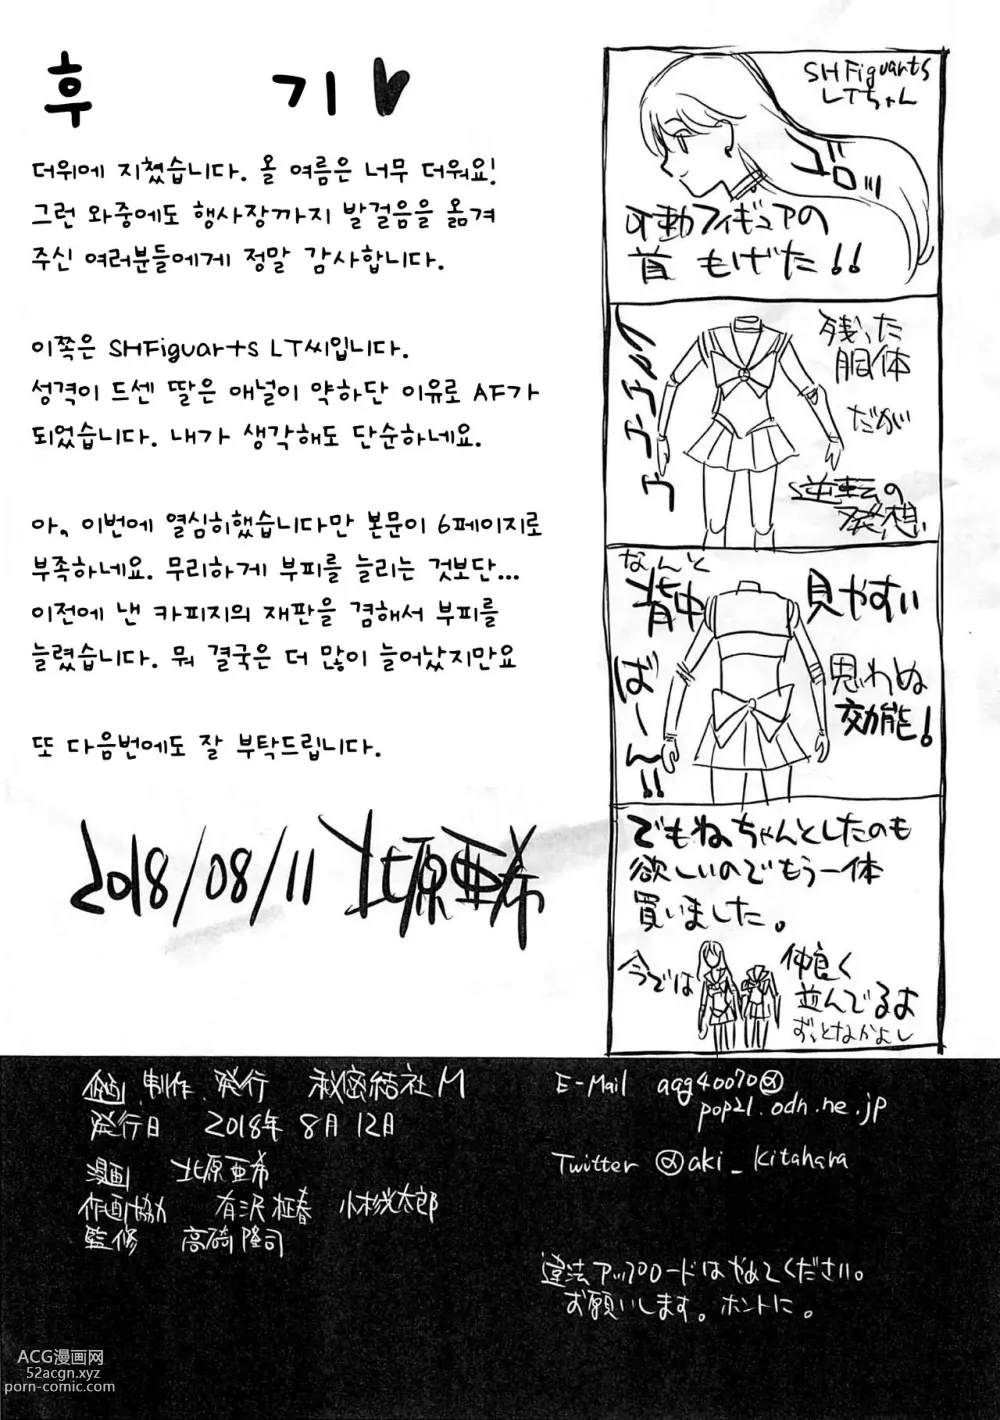 후 기
더위에 지쳤습니다. 올 여름은 너무 더워요!
그런 와중에도 행사장까지 발걸음을 옮겨
주신 여러분들에게 정말 감사합니다.
이쪽은 SHFiguarts LT씨입니다.
성격이 드센 딸은 애널이 약하단 이유로 AF가
되었습니다. 내가 생각해도 단순하네요.
아, 이번에 열심히했습니다만 본문이 6페이지로
부족하네요. 무리하게 부피를 늘리는 것보단...
이전에 낸 카피지의 재판을 겸해서 부피를
늘렸습니다. 뭐 결국은 더 많이 늘어났지만요
또 다음번에도 잘 부탁드립니다.
2018/08/11 北原亜希
SHFiguarts
LTちゃん
ゴロッ
可動フィギュアの
首 もげた!!
残った
胴体
だが
逆転の
発想
なんと
背中
見やすい
ばーん!!
思わぬ
効能!
でもねちゃんとしたのも
欲しいのでもう一体
買いました。
今では
仲良く
並んでるよ
ずっとなかよし
企画 制作 発行 秘密結社M
発行日 2018年 8月 12日
漫画 北原亜希
作画協力 有沢柾春 小杉光太郎
監修 高碕隆司
E-Mail agg40070@
pop21.odn.ne.jp
Twitter @aki_kitahara
違法アップロードはやめてください。
お願いします。ホントに。
ACG漫画网
52acgn.xyz
porn-comic.com